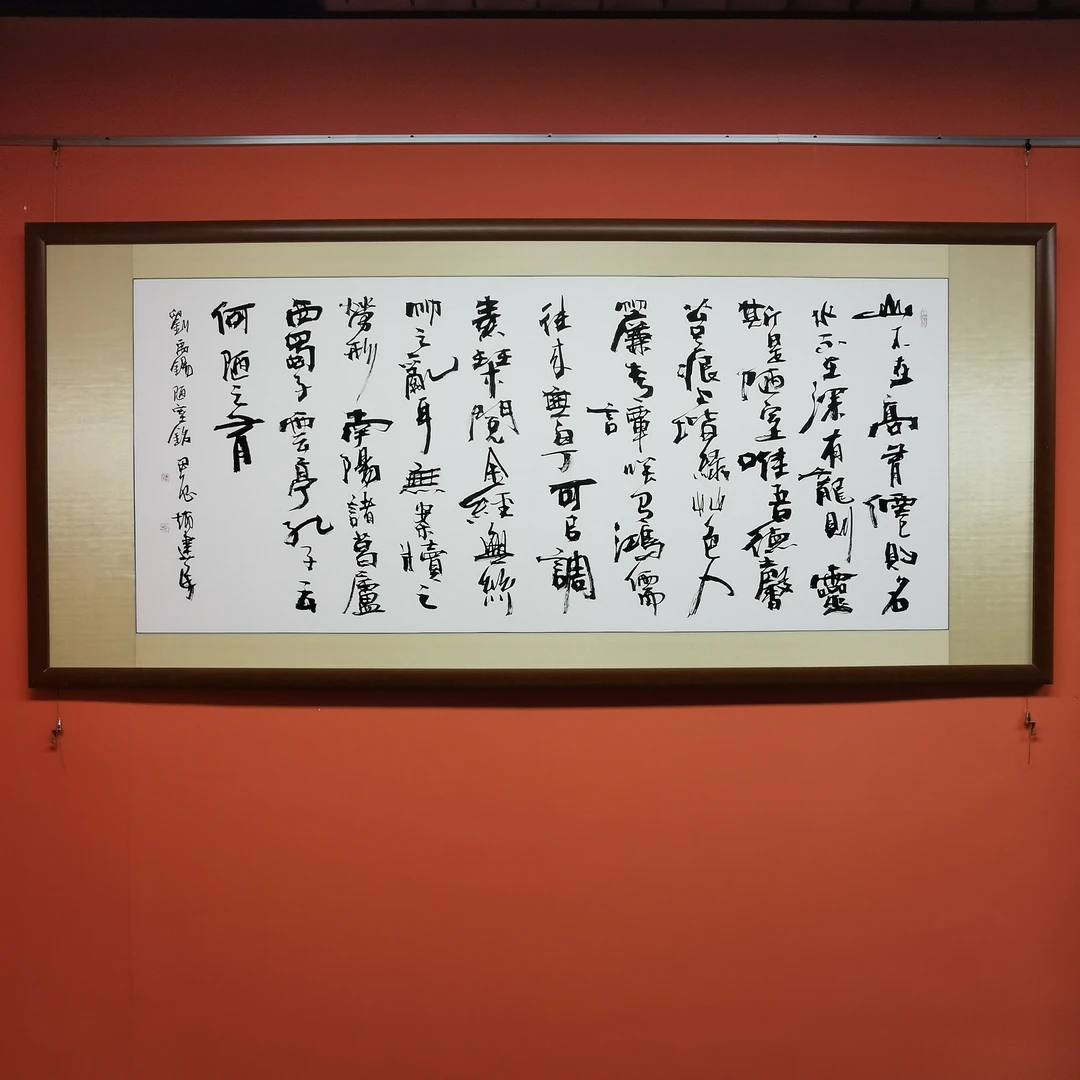 山不在高有僊則名
水不在深有龍則靈
斯是陋室唯吾德馨
苔痕上階綠艸色入
簾青譚咲有鴻儒
往来無白丁可以調
素琴閱金經無絲
竹之亂耳無案牘之
勞形南陽諸葛廬
西蜀子雲亭孔子云
何陋之有
劉禹錫陋室銘